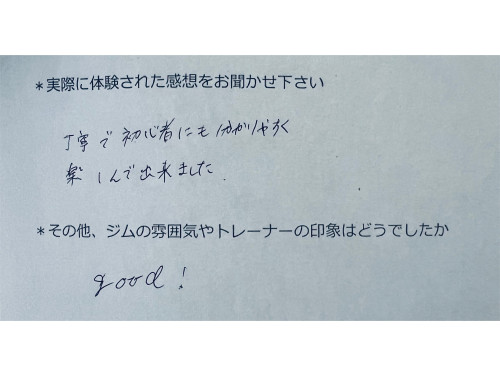 *実際に体験された感想をお聞かせ下さい
丁寧で初心者にも分かりやすく
楽しんで出来ました.
*その他、ジムの雰囲気やトレーナーの印象はどうでしたか
good!